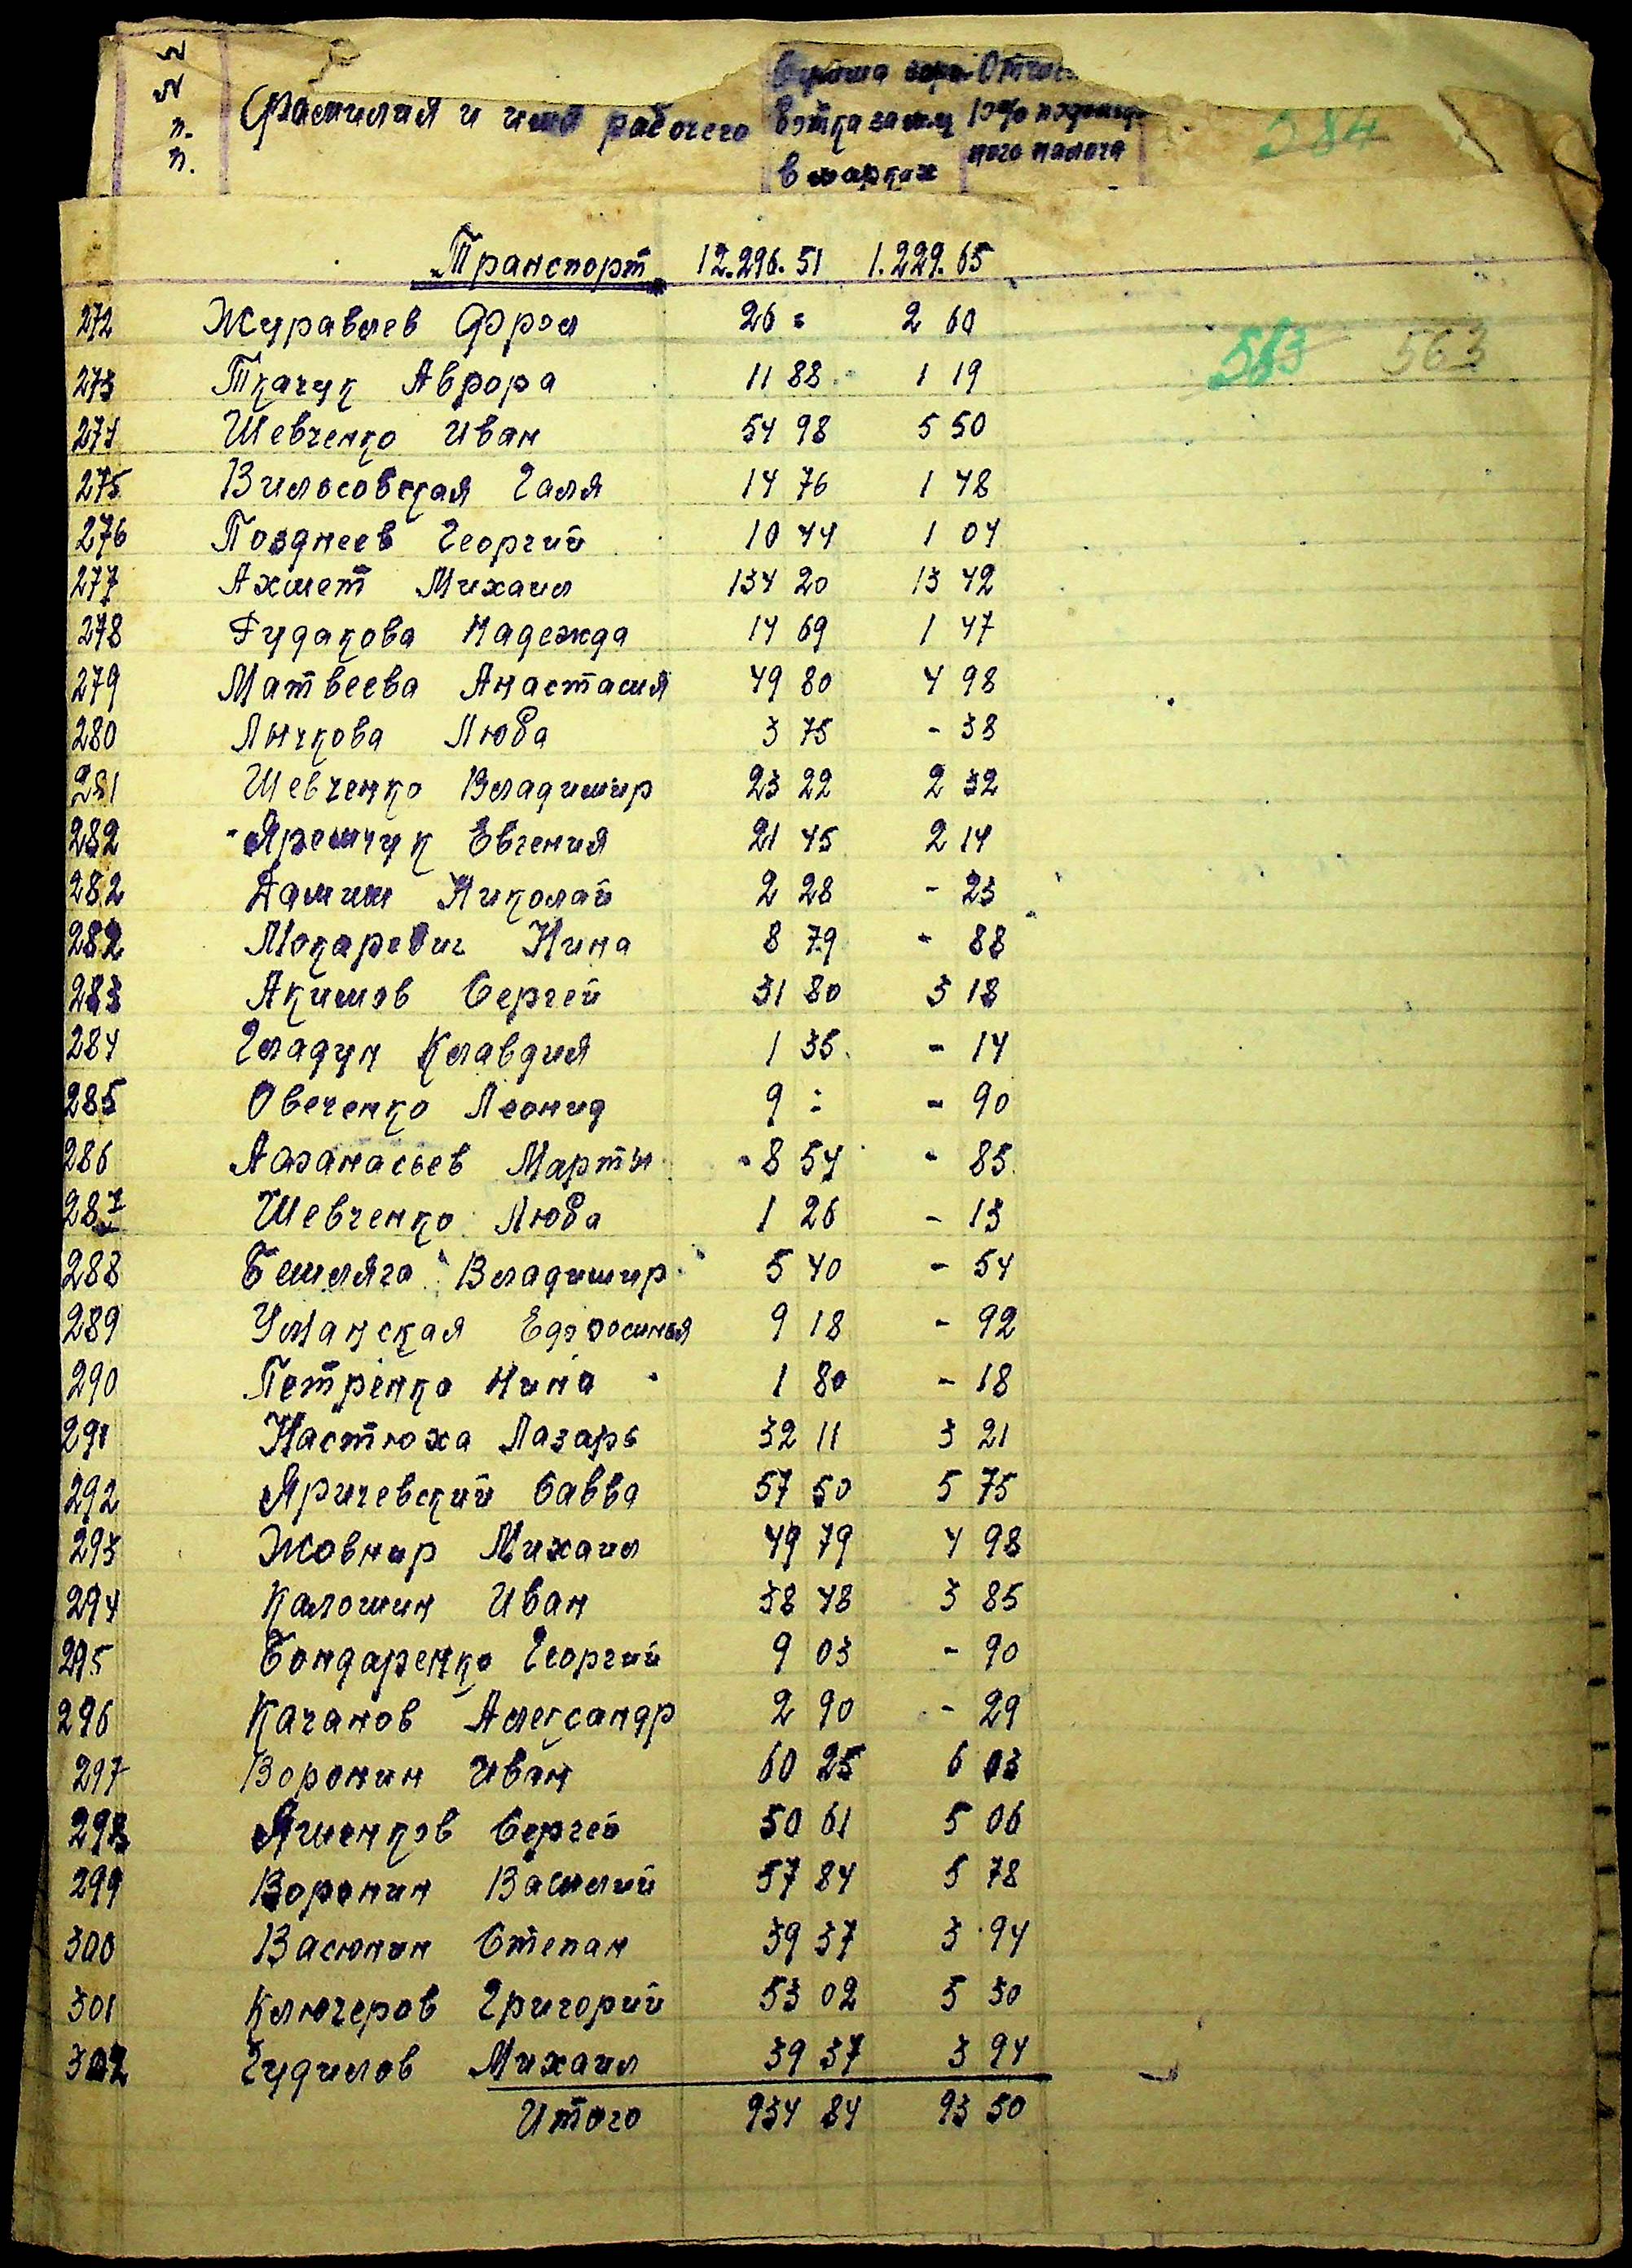 №№ п. п.
Фамилия и имя рабочего
Сумма зара-
ботка за м-ц
в марках
Отчис
10% подоход
ного налога
384
„Транспорт„ 12.296.51 1.229.65
272 Журавлев Фрол 26 = 2 60
583 563
273 Ткачук Аврора 11 88 1 19
274 Шевченко Иван 54 98 5 50
275 Вилосовская Галя 14 76 1 48
276 Позднеев Георгий 10 44 1 04
277 Ахмет Михаил 134 20 13 42
278 Гудакова Надежда 14 69 1 47
279 Матвеева Анастасия 49 80 4 98
280 Лычкова Люба 3 75 - 38
281 Шевченко Владимир 23 22 2 32
282 Яремчук Евгения 21 45 2 14
282 Николай 2 28 - 23
282 Мокаревич Нина 8 79 - 88
283 Акимов Сергей 31 80 3 18
284 Гладун Клавдия 1 35 - 14
285 Овеченко Леонид 9 = - 90
286 Афанасьев Марты 8 54 - 85
287 Шевченко Люба 1 26 - 13
288 Бешляга Владимир 5 40 - 54
289 Уманская Ефросинья 9 18 - 92
290 Петренко Нина 1 80 - 18
291 Настюха Лазарь 32 11 3 21
292 Яричевский Савва 57 50 5 75
293 Жовнир Михаил 49 79 4 98
294 Калошин Иван 38 48 3 85
295 Бондаренко Георгий 9 03 - 90
296 Качанов Александр 2 90 - 29
297 Воронин Иван 60 25 6 03
298 Яшенков Сергей 50 61 5 06
299 Воронин Василий 57 84 5 78
300 Васюнин Степан 39 37 3 94
301 Ключеров Григорий 53 02 5 30
302 Гудилов Михаил 39 37 3 94
Итого 934 84 93 50